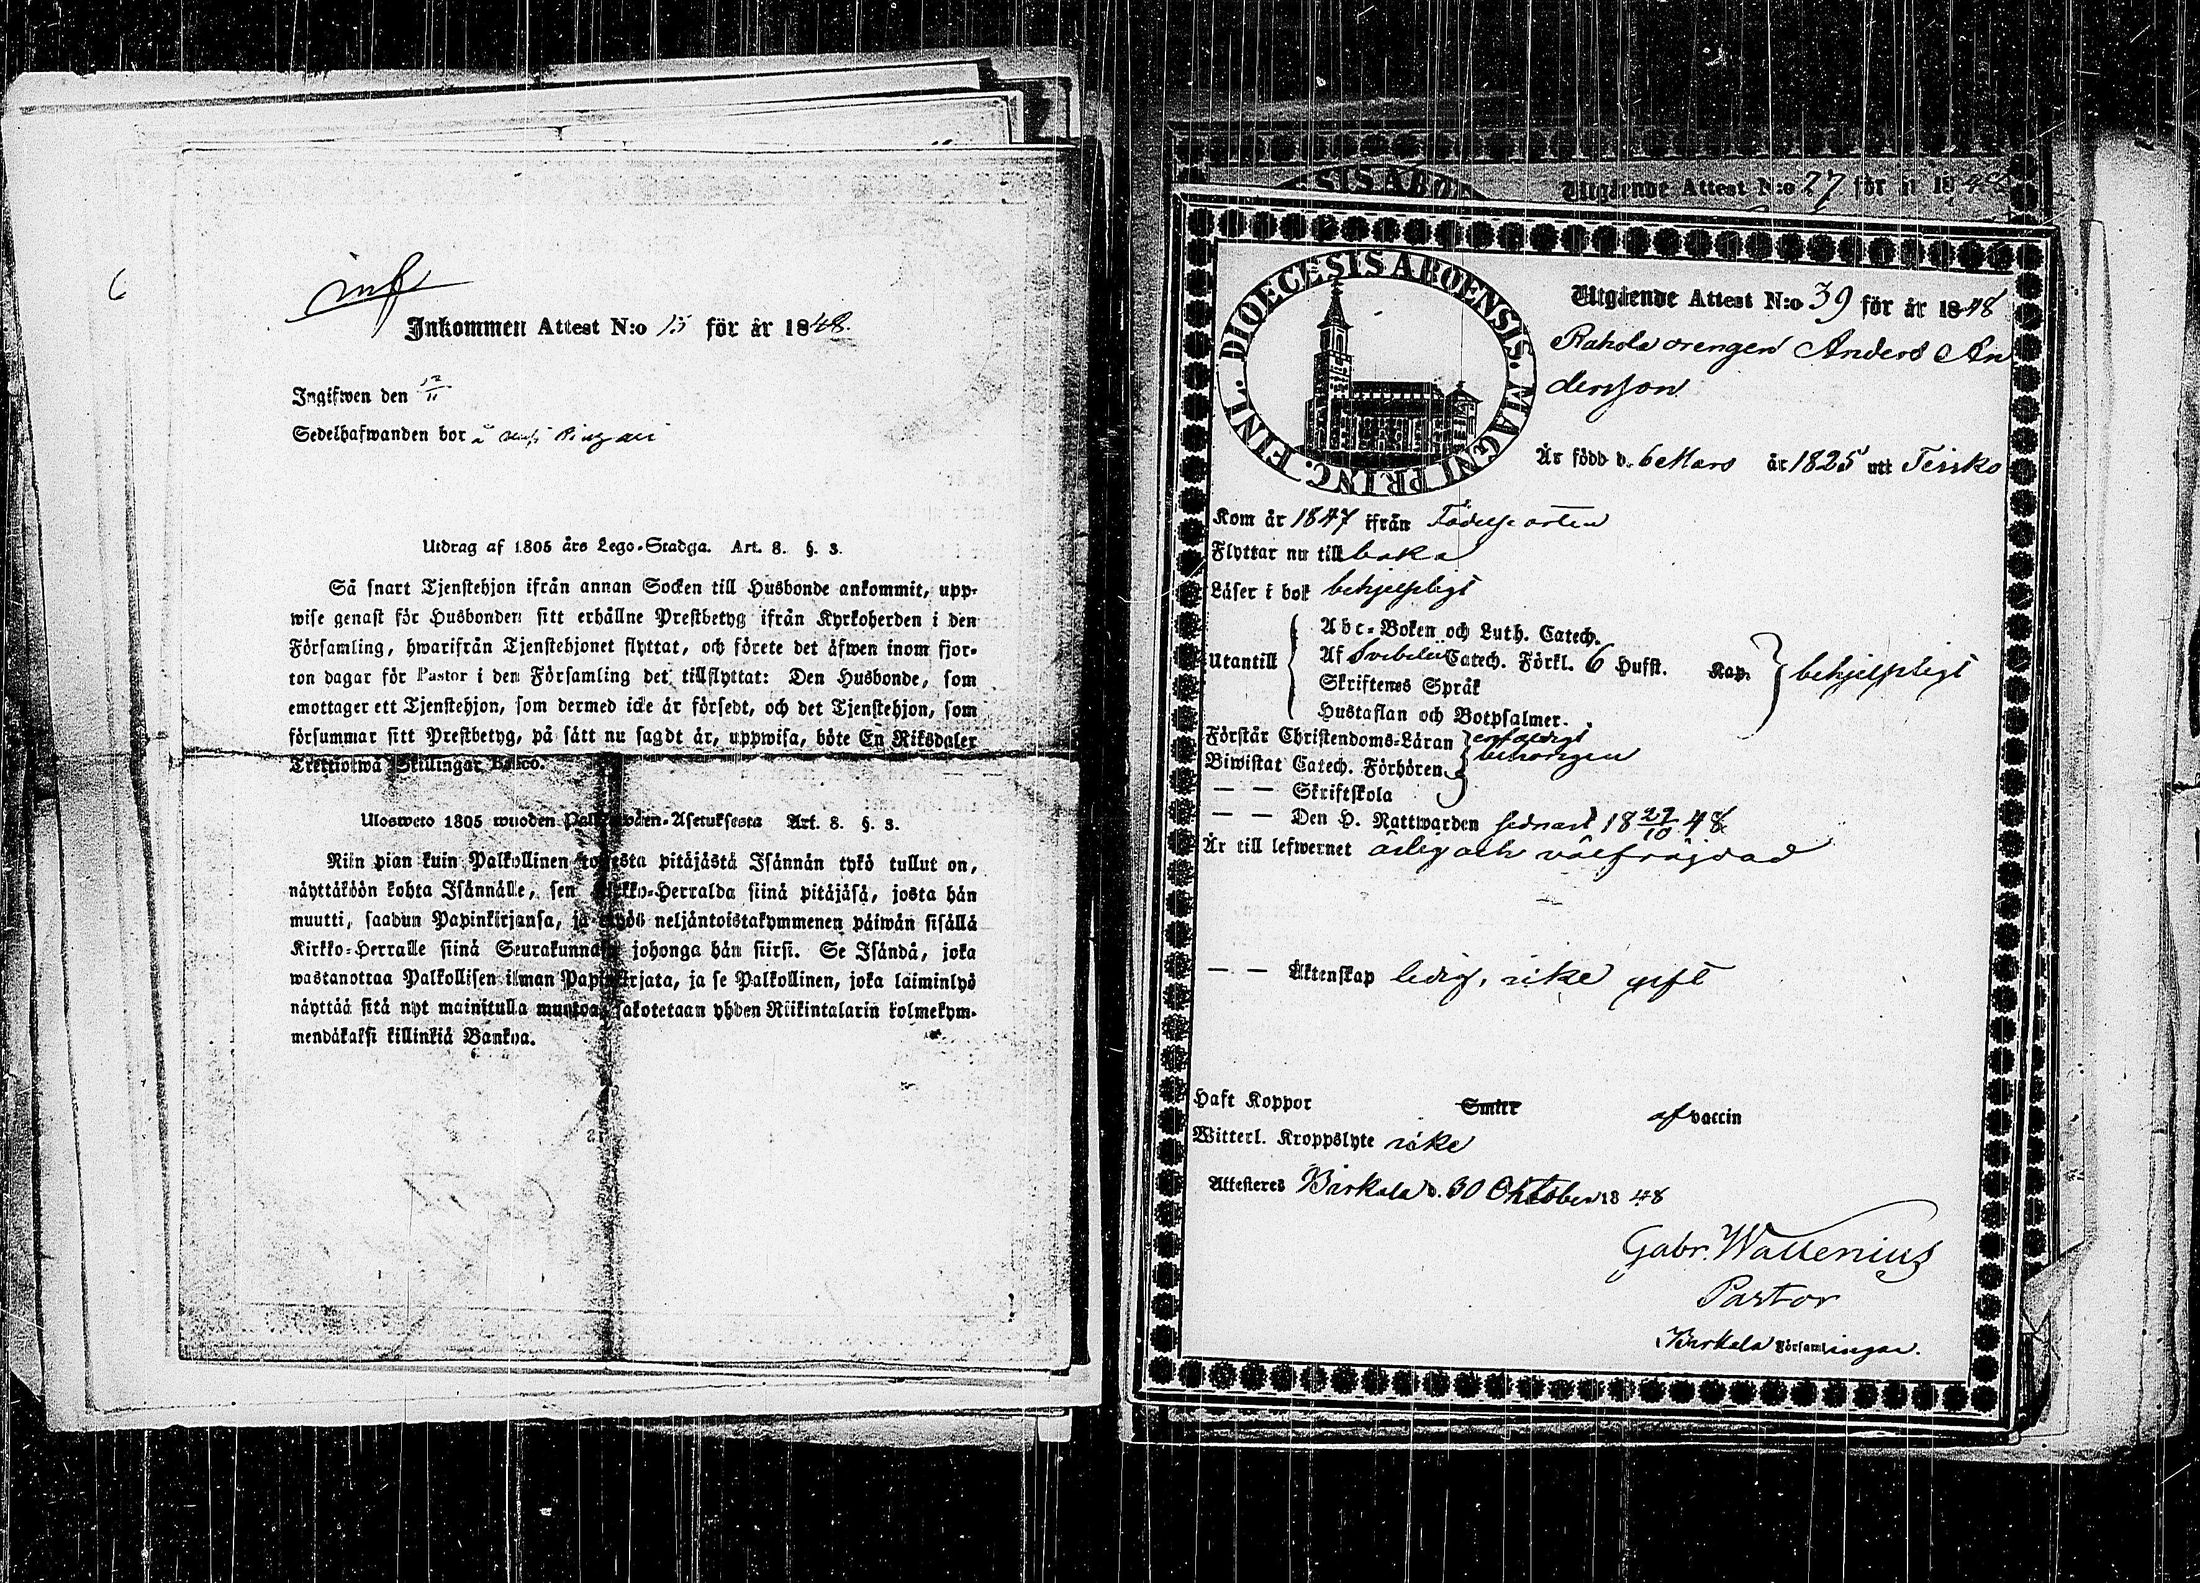 6
inf
Inkommen Attest N:o 15 för år 1848.
Ingifwen den 12/11
Sedelhafwanden bor å
Utdrag af 1805 års Lego-Stadga. Art. 8. §. 3.
Så snart Tjenstehjon ifrån annan Socken till Husbonde ankommit, upp-
wise genast för Husbonden sitt erhållne Prestbetyg ifrån Kyrkoherden i den
Församling, hwarifrån Tjenstehjonet flyttat, och förete det äfwen inom fjor-
ton dagar för Pastor i den Församling det tillflyttat: Den Husbonde, som
emottager ett Tjenstehjon, som dermed icke är försedt, och det Tjenstehjon, som
försummar sitt Prestbetyg, på sätt nu sagdt är, uppwisa, böte En Riksdaler
Trettiotwå Skillingar Banco.
Ulosweto 1805 wuoden Palkkawäen-Asetuksesta Art. 8. §. 3.
Niin pian kuin Palkollinen toisesta pitäjästä Isännän tykö tullut on,
näyttäköön kohta Isännälle, sen Kirkko-Herralda siinä pitäjäsä, josta hän
muutti, saadun Papinkirjansa, ja myös neljäntoistakymmenen päiwän sisällä
Kirkko-Herralle siinä Seurakunnasa johonga hän siirsi. Se Isändä, joka
wastanottaa Palkollisen ilman Papinkirjata, ja se Palkollinen, joka laiminlyö
näyttää sitä nyt mainitulla muotoa, sakotetaan yhden Riikintalarin kolmekym-
mendäkaksi killinkiä Bankoa.
Utgående Attest N:o 27 för år 1848
DIOECESIS ABOENSIS. MAGNI PRINC. FINL.
Utgående Attest N:o 39 för år 1848
Rahola drengen Anders An
dersson
Är född d. 6 Mars år 1825 utt Teisko
Kom år 1847 ifrån Födelseorten
Flyttar nu till baka
Läser i bok behjelpligt
Utantill
Abc-Boken och Luth. Catech.
Af Svebelii Catech. Förkl. 6 Hufst. Kap.
behjelpligt
Skriftenes Språk
Hustaflan och Botpsalmer.
Förstår Christendoms-Läran enfaldigt
Biwistat Catech. Förhören
behörigen
— — Skriftskola
— — Den H. Nattwarden sednast 18 29/10 48
Är till lefwernet ärlig och välfräjdad
— — Äktenskap ledig, icke gift
Haft Koppor Smitt af vaccin
Witterl. Kroppslyte icke
Attesteres Birkala d. 30 Oktober 1848
Gabr. Wallenius
Pastor
Birkala Församlingar.